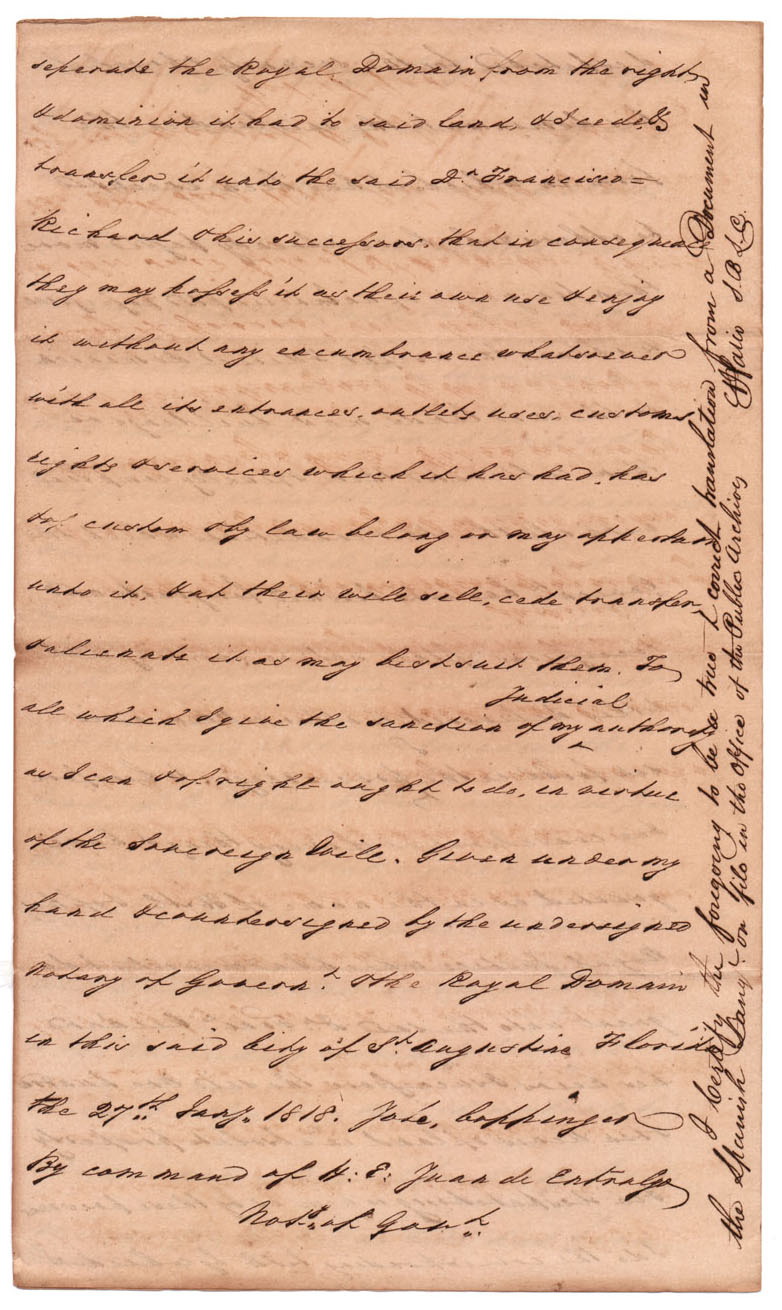 seperate the Royal Domain from the right
& dominion it had to said land, & I cede, &
transfer it unto the said Dn. Francisco =
Richard & his successors, that in consequence
they may possess it as their own use & enjoy
it without any encumbrance whatsoever
with all its entrances, outlets, uses, customs,
rights & services which it has had, has
& of custom & by law belong or may appertain
unto it, & at their will sell, cede transfer,
& alienate it as may best suit them. To
all which I give the sanction of my Judicial authority
as I can & of right ought to do, in virtue
of the Sovereign Will. Given under my
hand & countersigned by the undersigned
Notary of Governt. & the Royal Domain
in this said City of St. Augustine Florida
the 27th Jany. 1818. José Coppinger
By command of H. E. Juan de Entralgo
Noty. of Govt.
I Certify the foregoing to be a true & correct translation from a Document in
the Spanish Lang. on file in the Office of the Public Archives
S.B.L.C.